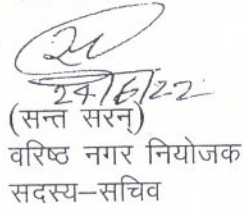 24/6/22
(सन्त सरन)
वरिष्ठ नगर नियोजक
सदस्य–सचिव